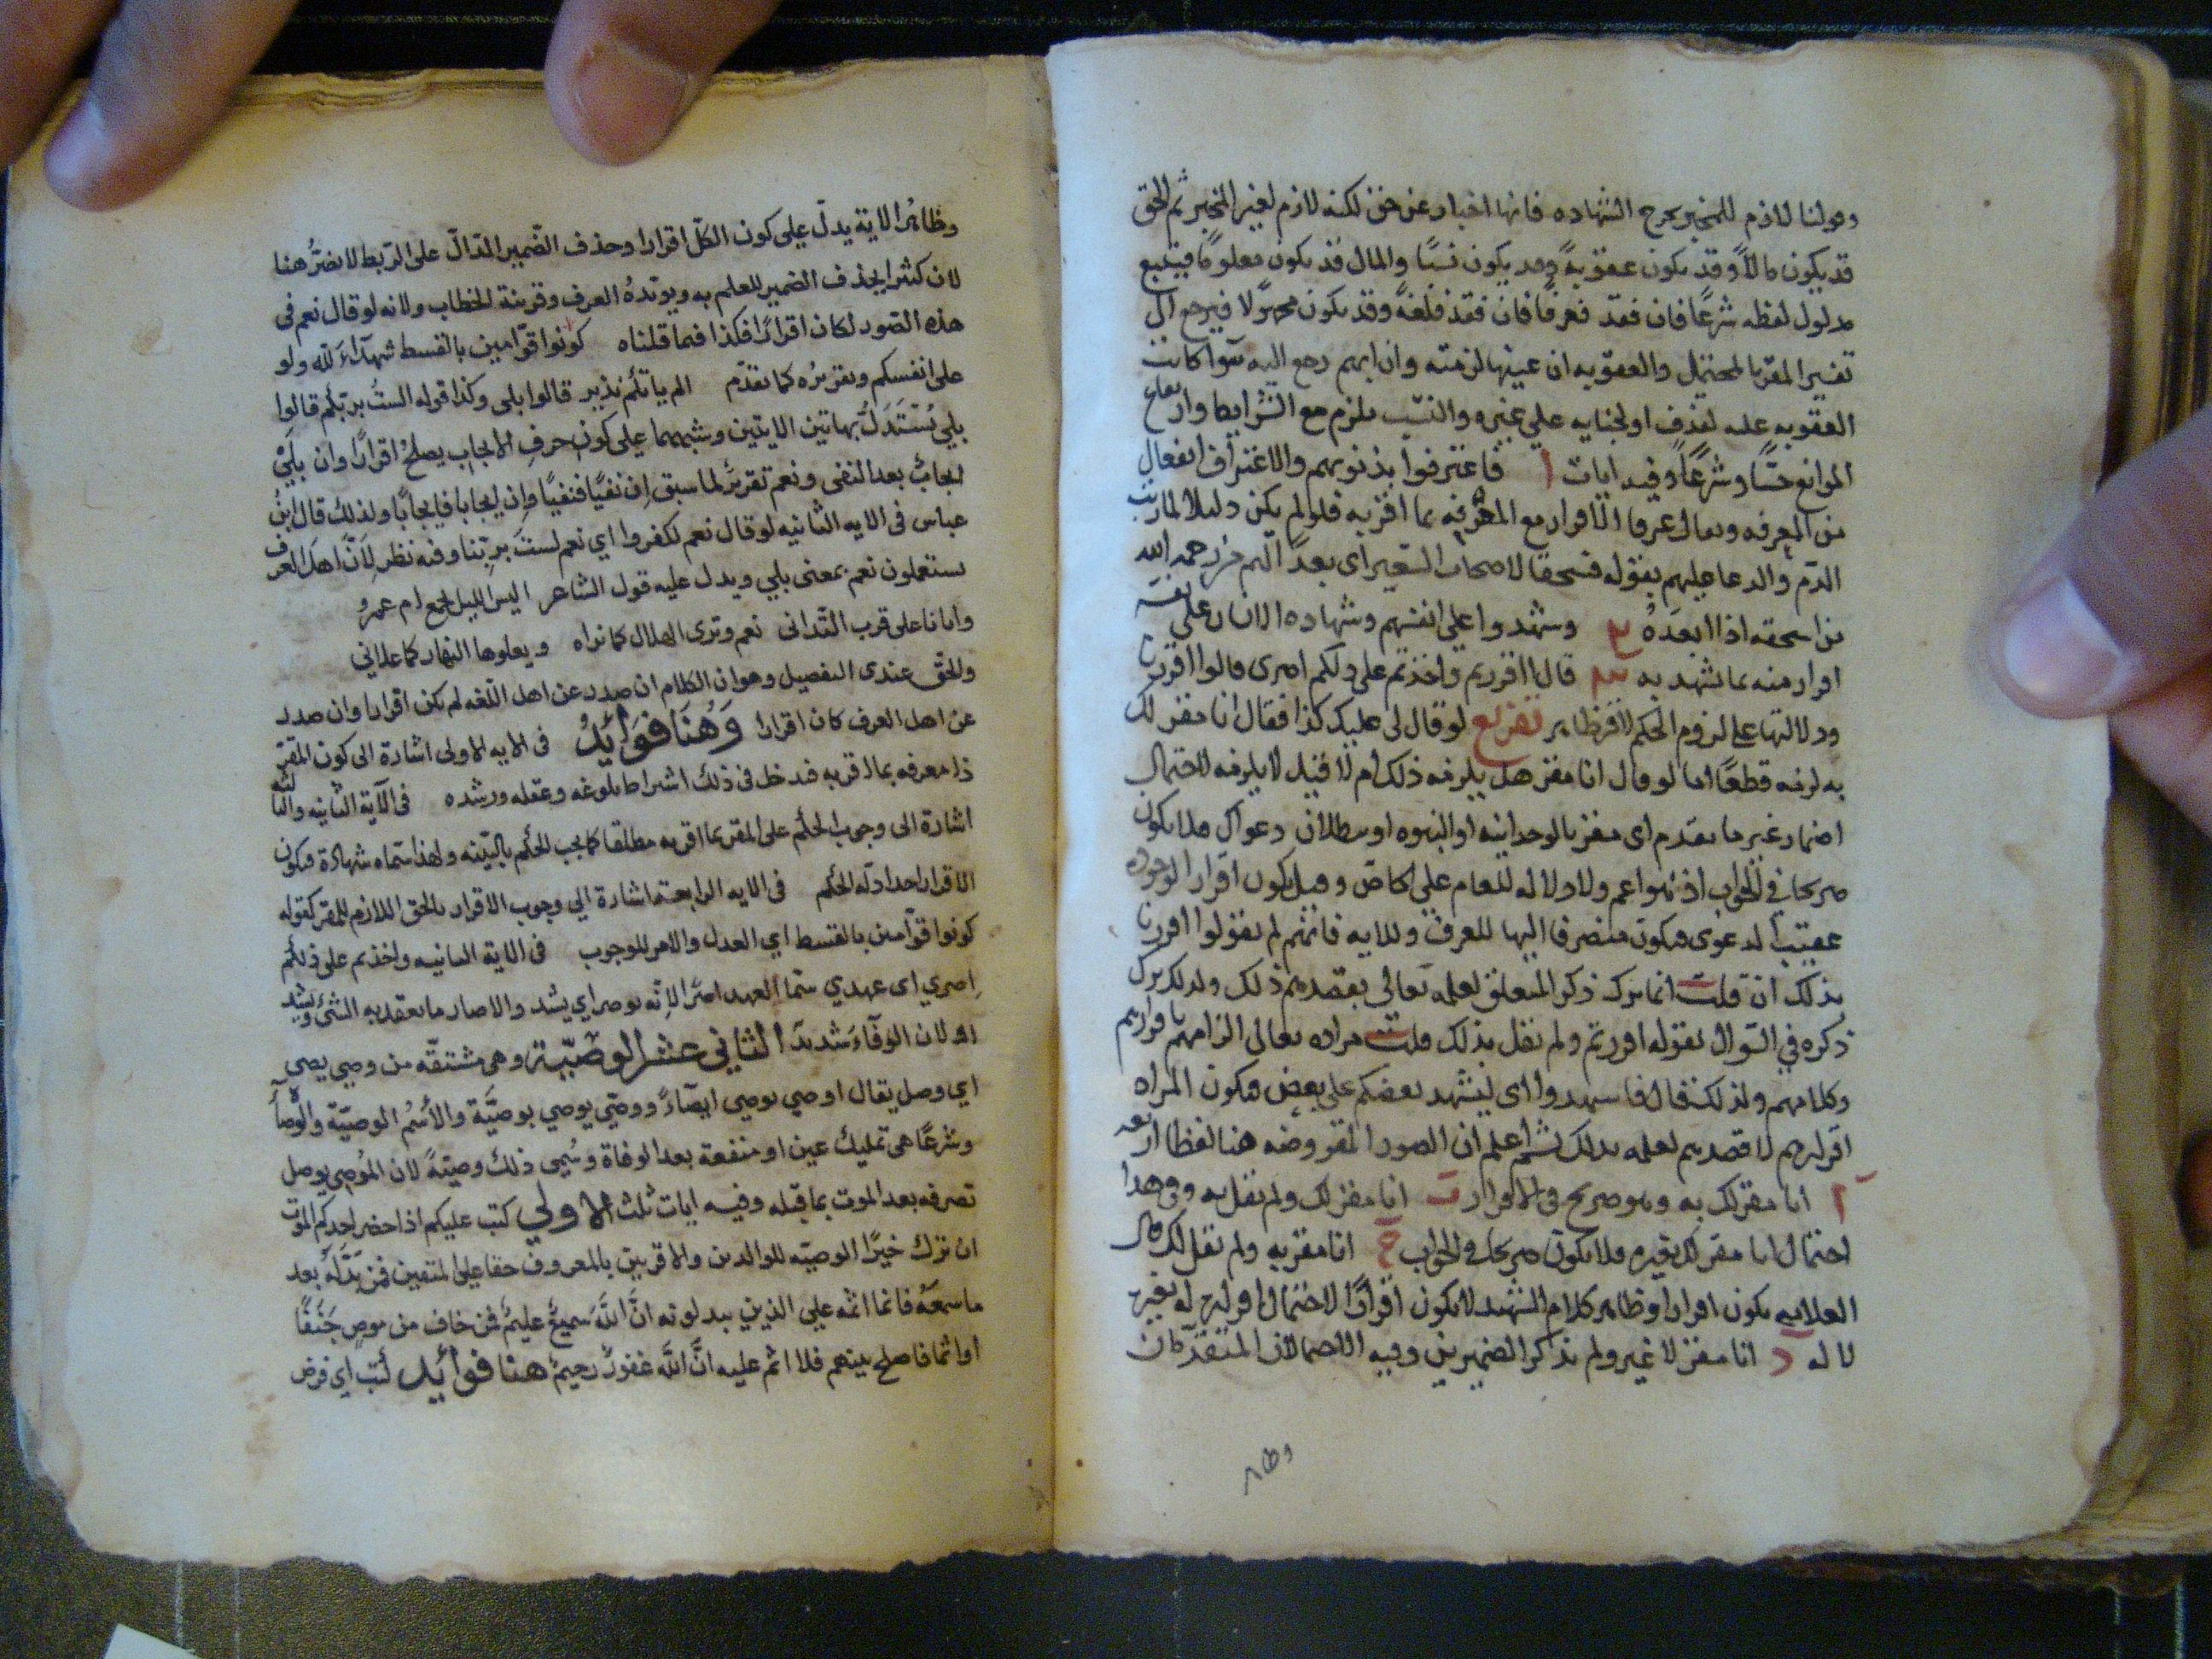 وقولنا لازم للمخبر يخرج الشهاده فانها اخبار عن حق لكنه لازم لغير المخبر ثم الحق
قد يكون مالاً وقد يكون عقوبةً وقد يكون نسبًا والمال قد يكون معلومًا فيتبع
مدلول لفظه شرعًا فان فقد فعرفًا فان فقد فلغةً وقد يكون مجهولا فيرجع الى
تفسير المقر بالمحتمل والعقوبه ان عينها لزمته وان ابهم رجع اليه سوا كانت
العقوبه عليه لقذف او لجنايه على غيره والنسب يلزم مع الشرايط وارتفاع
الموانع حسًا وشرعًا وفيه ايات ا فاعترفوا بذنوبهم والاعتراف افتعال
من المعرفه ويقال عرفا الاقرار مع المعرفه بما اقر به فلو لم يكن دليلا لما رتب
الذم والدعا عليهم بقوله فسحقا لاصحاب السعير اى بعدًا لهم من رحمه الله
من اسحقه اذا ابعدهُ وشهدوا على انفسهم وشهاده الانسان على نفسه
اقرار منه بما شهد به قال ااقررتم واخذتم على ذلكم اصرى قالوا اقررنا
ودلالتها على لزوم الحكم للاقر ظاهر تفريع لو قال لى عليك كذا فقال انا مقر لك
به لزمه قطعًا اما لو قال انا مقر هل يلزمه ذلك ام لا قيل لا يلزمه لاحتمال
اضمار غير ما تقدم اى مقر بالوحدانيه او النبوه او ببطلان دعواك فلا يكون
صريحا فى الجواب اذ هو اعم ولا دلاله للعام على الخاص وقيل يكون اقرارا لوجوده
عقيب الدعوى فيكون منصرفا اليها للعرف وللايه فانهم لم يقولوا اقررنا
بذلك ان قلت انما ترك ذكر المتعلق لعلمه تعالى بقصدهم ذلك ولذلك ترك
ذكره في السوال بقوله اقررتم ولم يقل بذلك قلت مراده تعالى الزامهم باقرارهم
وكلامهم ولذلك قال فاشهدوا اى ليشهد بعضكم على بعض فيكون المراد
اقرارهم لا قصدهم لعلمه بذلك ثم اعلم ان الصور المفروضه هنا لفظا اربعه
ا انا مقر لك به وهو صريح فى الاقرار ب انا مقر لك ولم يقل به وفى هذا
احتمال انا مقر لك بغيره فلا يكون صريحا فى الجواب ج انا مقر به ولم يقل لك قال
العلامه يكون اقرارا وظاهر كلام الشهيد لا يكون اقرارًا لاحتمال اقراره به لغيره
لا له د انا مقر لا غير ولم يذكر الضميرين وفيه الاحتمالان المتقدمان
وظاهر
وظاهُر الاية يدلّ على كون الكلّ اقرارا وحذف الضّمير الدّالّ على الرّبط لا يضرُّ هنا
لان كثيرا يحذف الضمير للعلم به ويويّدهُ العرف وقرينة الخطاب ولانه لو قال نعم فى
هذه الصّور لكان اقرارًا فكذا فيما قلناه كونوا قوّامين بالقسط شهدآءَ للّه ولو
على انفسكم وتقريرُه كما تقدّم الم ياتكم نذير قالوا بلى وكذا قوله الستُ بربّكم قالوا
بلي يُسْتَدَلُّ بهاتين الايتين وشبههما على كون حرف الايجاب يصلحُ اقرارًا وان بلَىْ
ايجابٌ بعد النفى ونعم تقريرٌ لما سبق اِن نفيًا فنفيًا وان ايجابا فايجابًا ولذلك قال ابنُ
عباس فى الايه الثانيه لو قال نعم لكفروا اي نعم لستَ بربّنا وفيه نظر لِاَنَّ اهلَ العرف
يستعملون نعم بمعنى بلي ويدل عليه قول الشاعر اليس الليل يجمع ام عمروٍ
وايانا على قرب التّدانى نعم وترى الهلال كما نراه ويعلوها النهار كما علاني
والحقّ عندى التفصيل وهو ان الكلام ان صدر عن اهل اللّغه لم يكن اقرارا وان صدر
عن اهل العرف كان اقرارا وَهُنَا فوَائِدُ فى الايه الاولى اشارة الى كون المقرّ
ذا معرفه بما اقر به فدخل فى ذلك اشتراط بلوغه وعقله ورشده فى الآية الثانيه والثالثه
اشارة الى وجوب الحكم على المقر بما اقر به مطلقا كما يجب الحكم بالبيّنه ولهذا سمّاه شهادة فيكون
الاقرار احد ادلّه الحكم فى الايه الرابعة اشارة الي وجوب الاقرار بالحق اللازم للمقر كقوله
كونوا قوّامين بالقسط اي العدل والامر للوجوب فى الاية الثانيه واخذتم على ذلكم
اِصري اى عهدي سمّا العهد اصرًا لانّه يوصر اي يشد والاصار ما يعقد به الشئ ويشد
او لان الوفآءَ شديدٌ الثاني عشر الوصيّة وهى مشتقّه من وصى يصى
اي وصل يقال اوصى يوصي ايصاءً ووصّي يوصي بوصيَّة والاُسمُ الوصيّة والوصاه
وشرعًا هى تمليك عين او منفعة بعد الوفاة وسُمى ذلك وصيّةً لان المُوصِى يوصل
تصرفه بعد الموت بما قبله وفيه ايات ثلث الاولي كتب عليكم اذا حضر احدكم الموت
ان ترك خيرًا الوصيّه للوالدين والاقربين بالمعروف حقا على المتقين فمن بَدَّلَهُ بعد
ما سمعَهُ فانما اثمه علي الذين يبدلونه انَّ اللَّهَ سَميعٌ عليمٌ فمن خاف من موصٍ جَنَفًا
او اثما فاصلح بينهم فلا اثم عليه انَّ اللَّه غفورٌ رحيمٌ هنا فوائِد كُتب اي فرض